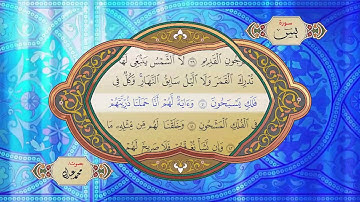 سورة
يس
كَالْعُرْجُونِ الْقَدِيمِ ۝٣٩ لَا الشَّمْسُ يَنْبَغِي لَهَا
تُدْرِكَ الْقَمَرَ وَلَا اللَّيْلُ سَابِقُ النَّهَارِ وَكُلٌّ فِي
فَلَكٍ يَسْبَحُونَ ۝٤٠ وَءَايَةٌ لَهُمْ أَنَّا حَمَلْنَا ذُرِّيَّتَهُمْ
فِي الْفُلْكِ الْمَشْحُونِ ۝٤١ وَخَلَقْنَا لَهُمْ مِنْ مِثْلِهِ مَا
۝٤٢ وَإِنْ نَشَأْ نُغْرِقْهُمْ فَلَا صَرِيخَ لَهُمْ
بصوت